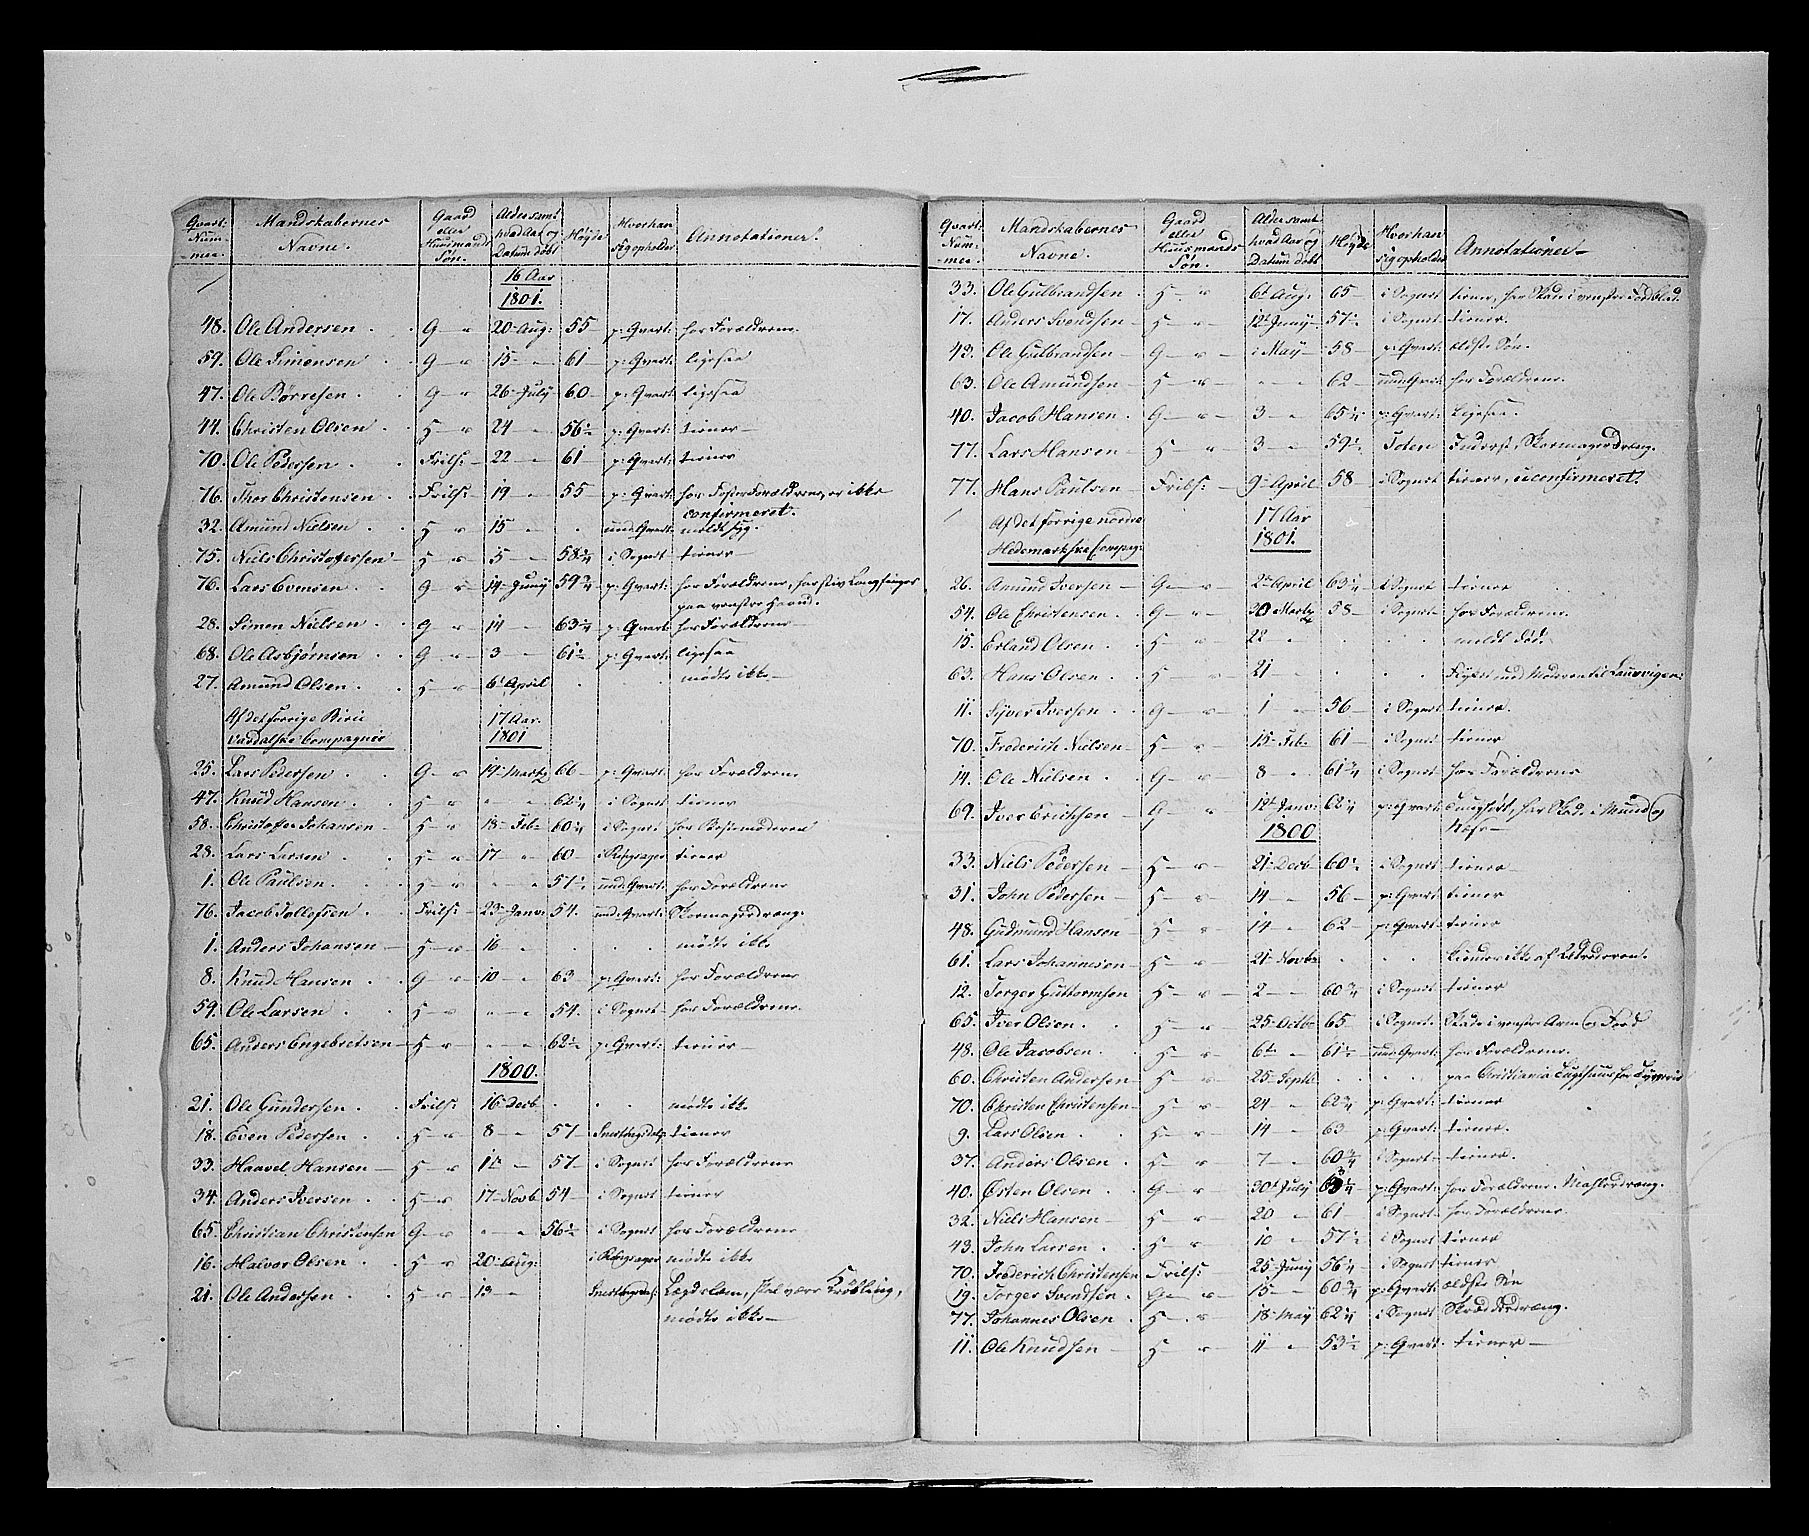 Qvart: Num-mer Mandskabernes Navne. Gaard eller Huusmands Søn. Alder samt hvad Aar og Datum døbt Høyde Hvorhan sig opholder Annotationer.
16 Aar
1801.
48. Ole Andersen G 20 Aug: 55 p: Qvart: hos Forældrene.
59. Ole Simensen G 15 61 p: Qvart: ligesaa
47. Ole Børresen G 26 July 60 p: Qvart: ligesaa
44. Christen Olsen H 24 56 p: Qvart: tiener
70. Ole Pedersen Frils: 22 61 p: Qvart: tiener
76. Thor Christensen Frils: 19 55 p: Qvart: hos Fosterforældrene, er ikke
confirmeret.
32. Amund Nielsen H 15 und: Qvart: meldt syg.
75. Niels Christofersen H 5 58 i Sognet tiener
76. Lars Evensen G 14 Juny 59 p: Qvart: hos Forældrene, har stiv Langfinger
paa venstre Haand.
28. Simen Nielsen G 14 63 p: Qvart: hos Forældrene
68. Ole Asbjørnsen G 3 61 p: Qvart: ligesaa
27. Amund Olsen H 6t April mødte ikke
Af det forrige Birie 17 Aar.
Vardalske Compagnie 1801
25. Lars Pedersen G 14 Marty 66 p: Qvart: hos Forældrene
47. Knud Hansen H 62 i Sognet tiener
58. Christofer Johansen H 18 Feb 60 i Sognet hos Bestemoderen
28. Lars Larsen H 17 60 i Ringsager tiener
1. Ole Paulsen H 57 und: Qvart: hos Forældrene
76. Jacob Tollefsen Frils: 23 Janv: 54. und: Qvart: Skomagerdræng.
1. Anders Johansen H 16 mødte ikke
8. Knud Hansen G 10 63 p: Qvart: hos Forældrene
59. Ole Larsen H 54. i Sognet hos Forældrene.
65. Anders Engebretsen H 62 p: Qvart: tiener
1800.
21. Ole Gundersen Frils: 16 Decb mødte ikke
18. Even Pedersen H 8 57 tiener
33. Haavel Hansen H 57 i Sognet hos Forældrene
34. Anders Iversen H 17 Novb 54 i Sognet tiener
65. Christian Christensen G 56 i Sognet hos Forældrene
16. Halvor Olsen H 20 Aug: i Ringsager mødte ikke
21. Ole Andersen H 13 Lægdslem, skal være Krøbling,
mødte ikke
Qvart: Num-mer Mandskabernes Navne. Gaard eller Huusmands Søn. Alder samt hvad Aar og Datum døbt Høyde Hvorhan sig opholder Annotationer
33. Ole Gulbrandsen H 6t Aug: 65 i Sognet tiener, har Skade i venstre Fodblad.
17. Anders Svendsen H 12t Juny 57 i Sognet tiener.
43. Ole Gulbrandsen G i May 58 p: Qvart: ældste Søn.
63. Ole Amundsen H 62 und: Qvart: hos Forældrene.
40. Jacob Hansen G 3 65 p: Qvart: ligesaa.
77. Lars Hansen H 3 59 Toten Inderst, Skomagerdræng.
77. Hans Paulsen Frils: 9 April 58 i Sognet tiener, uconfirmeret.
Af det forrige nordre 17 Aar
Hedemarkske Compag: 1801.
26. Amund Iversen G 2 April 63 i Sognet tiener
54. Ole Christensen G 20 Marty 58 i Sognet hos Forældrene.
15. Erland Olsen H 22 meldt død.
63. Hans Olsen H 21 flyttet med Moderen til Laurvigen:
11. Syver Iversen G 1 56 i Sognet tiener.
70. Frederich Nielsen H 15 Feb 61 i Sognet tiener
14. Ole Nielsen G 8 61 i Sognet hos Forældrene
69. Iver Erichsen G 12t Janv: 62 p: Qvart: har Skade i Mund og
Næse
1800
33. Niels Pedersen H 21 Decb 60 i Sognet tiener
31. John Pedersen H 14 56 p: Qvart: tiener
48. Gudmund Hansen H 14 62 p: Qvart: tiener
61. Lars Johannesen H 21 Novb kiendes ikke af
12. Torger Guttormsen H 2 60 i Sognet tiener
65. Iver Olsen H 25 Octb 65 i Sognet Skade i venstre Arm og Fod
48. Ole Jacobsen H 6t 61 und: Qvart: hos Forældrene.
60. Christen Andersen H 25 Septb paa Christiania Tugthuus for Tyverie
70. Christen Christensen H 24 62 p: Qvart: tiener
9. Lars Olsen H 14 63 p: Qvart: tiener.
37. Anders Olsen H 7 60 i Sognet tiener.
40. Østen Olsen G 30t July 63 p: Qvart: hos Forældrene. Mahlerdræng.
32. Niels Hansen H 20 61 i Sognet hos Forældrene.
43. John Larsen H 10 57 i Sognet tiener
70. Frederich Christensen Frils: 25 Juny 56 i Sognet tiener
19. Torger Svendsen G 15 60 p: Qvart: ældste Søn
77. Johannes Olsen H 18 May 62 i Sognet Skrædderdræng.
11. Ole Knudsen H 11 53 p: Qvart: tiener